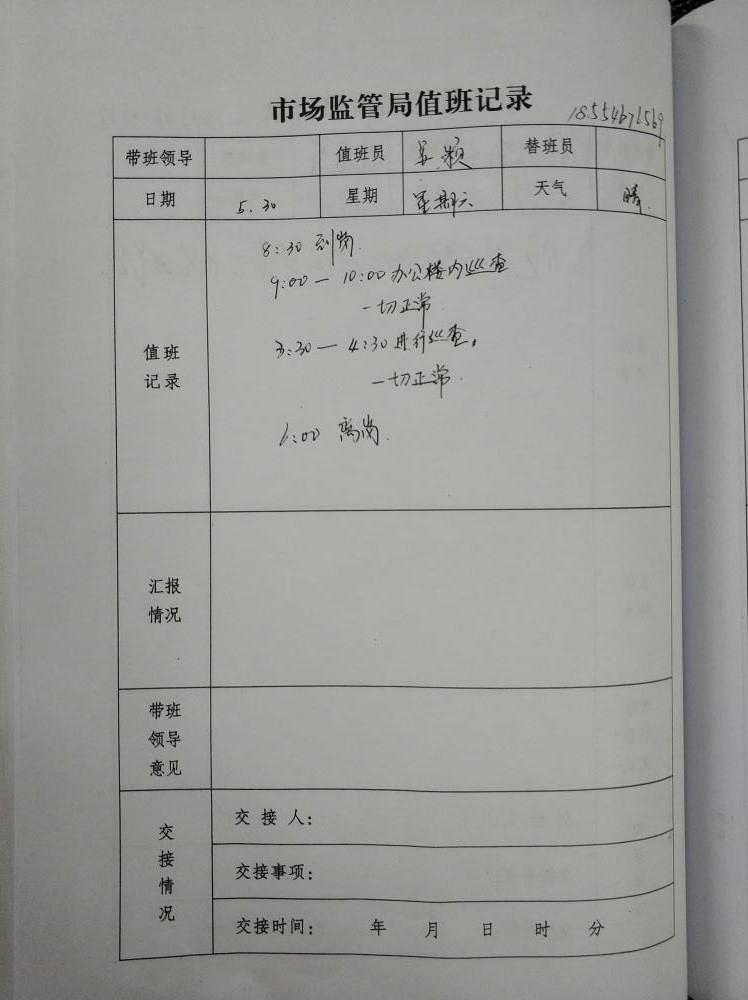 市场监管局值班记录
带班领导 值班员 颖 替班员
日期 5.30 星期 星期六 天气 晴
8:30 到岗
9:00 — 10:00 办公楼内巡查
一切正常
值班记录
3:30 — 4:30 进行巡查。
一切正常
:00 离岗
汇报
情况
带班
领导
意见
交接情况
交接人:
交接事项:
交接时间: 年 月 日 时 分